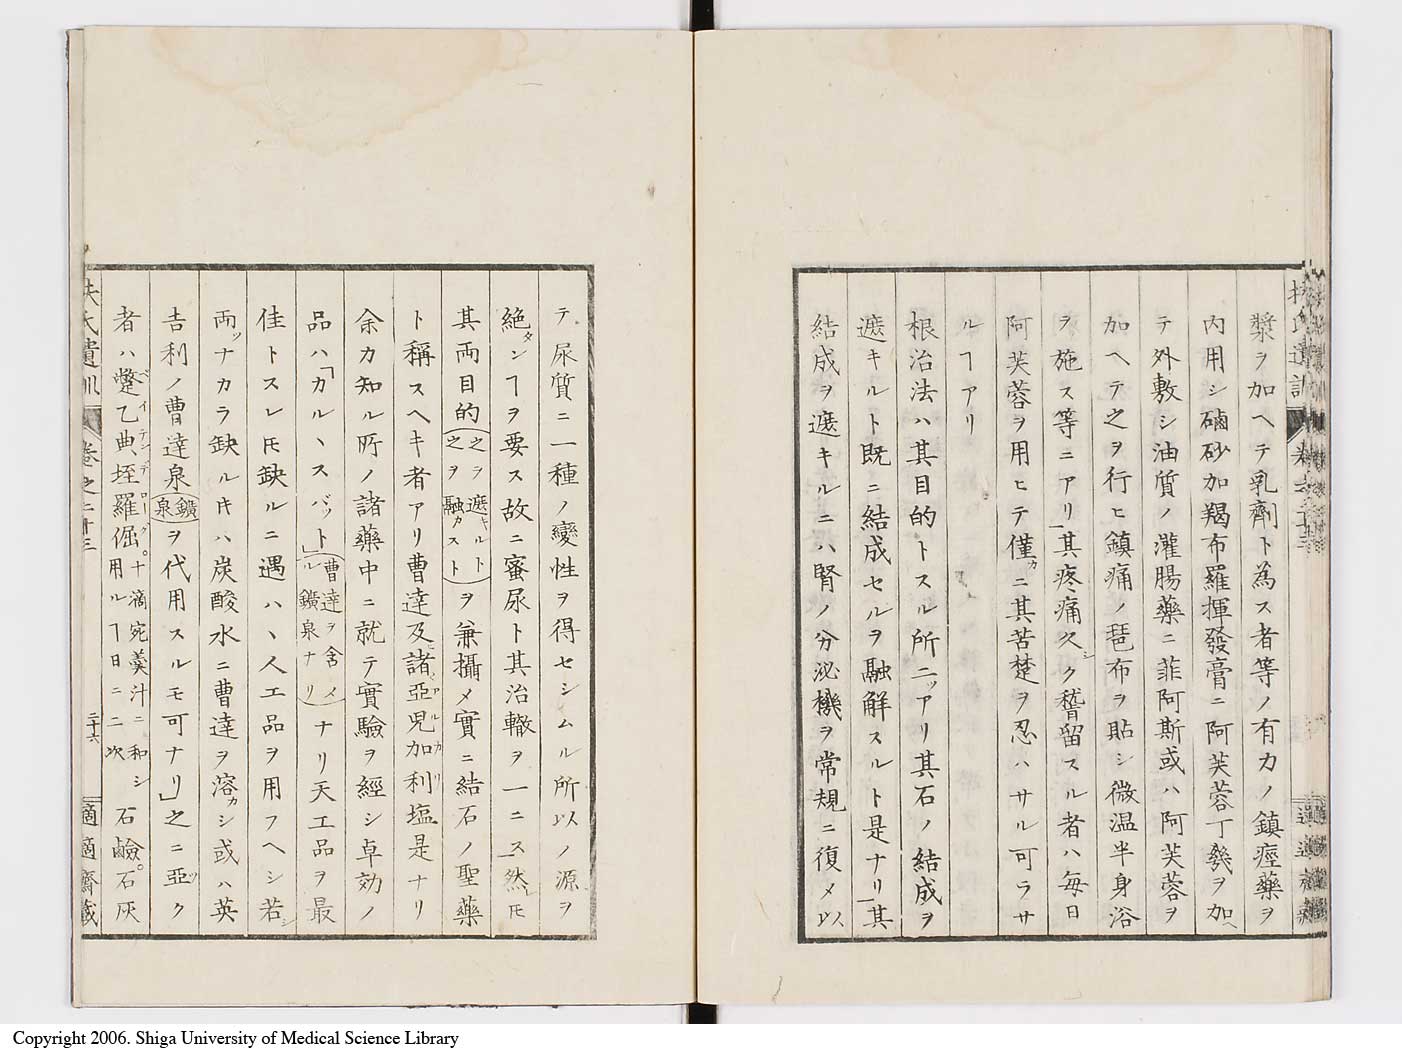 漿ヲ加ヘテ乳劑ト為ス者等ノ有力ノ鎮痙藥ヲ
内用シ磠砂加羯布羅揮發膏ニ阿芙蓉丁幾ヲ加ヘ
テ外敷シ油質ノ灌腸藥ニ菲阿斯或ハ阿芙蓉ヲ
加ヘテ之ヲ行ヒ鎮痛ノ琶布ヲ貼シ微温半身浴
ヲ施ス等ニアリ」其疼痛久シク稽留スル者ハ毎日
阿芙蓉ヲ用ヒテ僅カニ其苦楚ヲ忍ハサル可ラサ
ルヿアリ
根治法ハ其目的トスル所二ツアリ其石ノ結成ヲ
遮キルト既ニ結成セルヲ融解スルト是ナリ」其
結成ヲ遮キルニハ腎ノ分泌機ヲ常規ニ復メ以
テ尿質ニ一種ノ變性ヲ得セシムル所以ノ源ヲ
絶タンヿヲ要ス故ニ蜜尿ト其治轍ヲ一ニス」然レ𪜈
其両目的(之ヲ遮キルト之ヲ融カスト)ヲ兼攝メ實ニ結石ノ聖藥
ト稱スヘキ者アリ曹達及ヒ諸亞兒加利塩是ナリ
余カ知ル所ノ諸藥中ニ就テ實驗ヲ經シ卓効ノ
品ハ「カルヽスバット」(曹達ヲ含メル鑛泉ナリ)ナリ天工品ヲ最
佳トスレ𪜈缺ルニ遇ハヽ人工品ヲ用フヘシ若シ
両ツナカラ缺ル𬼀ハ炭酸水ニ曹達ヲ溶カシ或ハ英
吉利ノ曹達泉(鑛泉)ヲ代用スルモ可ナリ」之ニ亞ク
者ハ蹩乙典垤羅倔。十滴宛羹汁ニ和シ用ルヿ日ニ二次 石鹼。石灰
扶氏遺訓 卷之二十三 二十六 適適齋藏